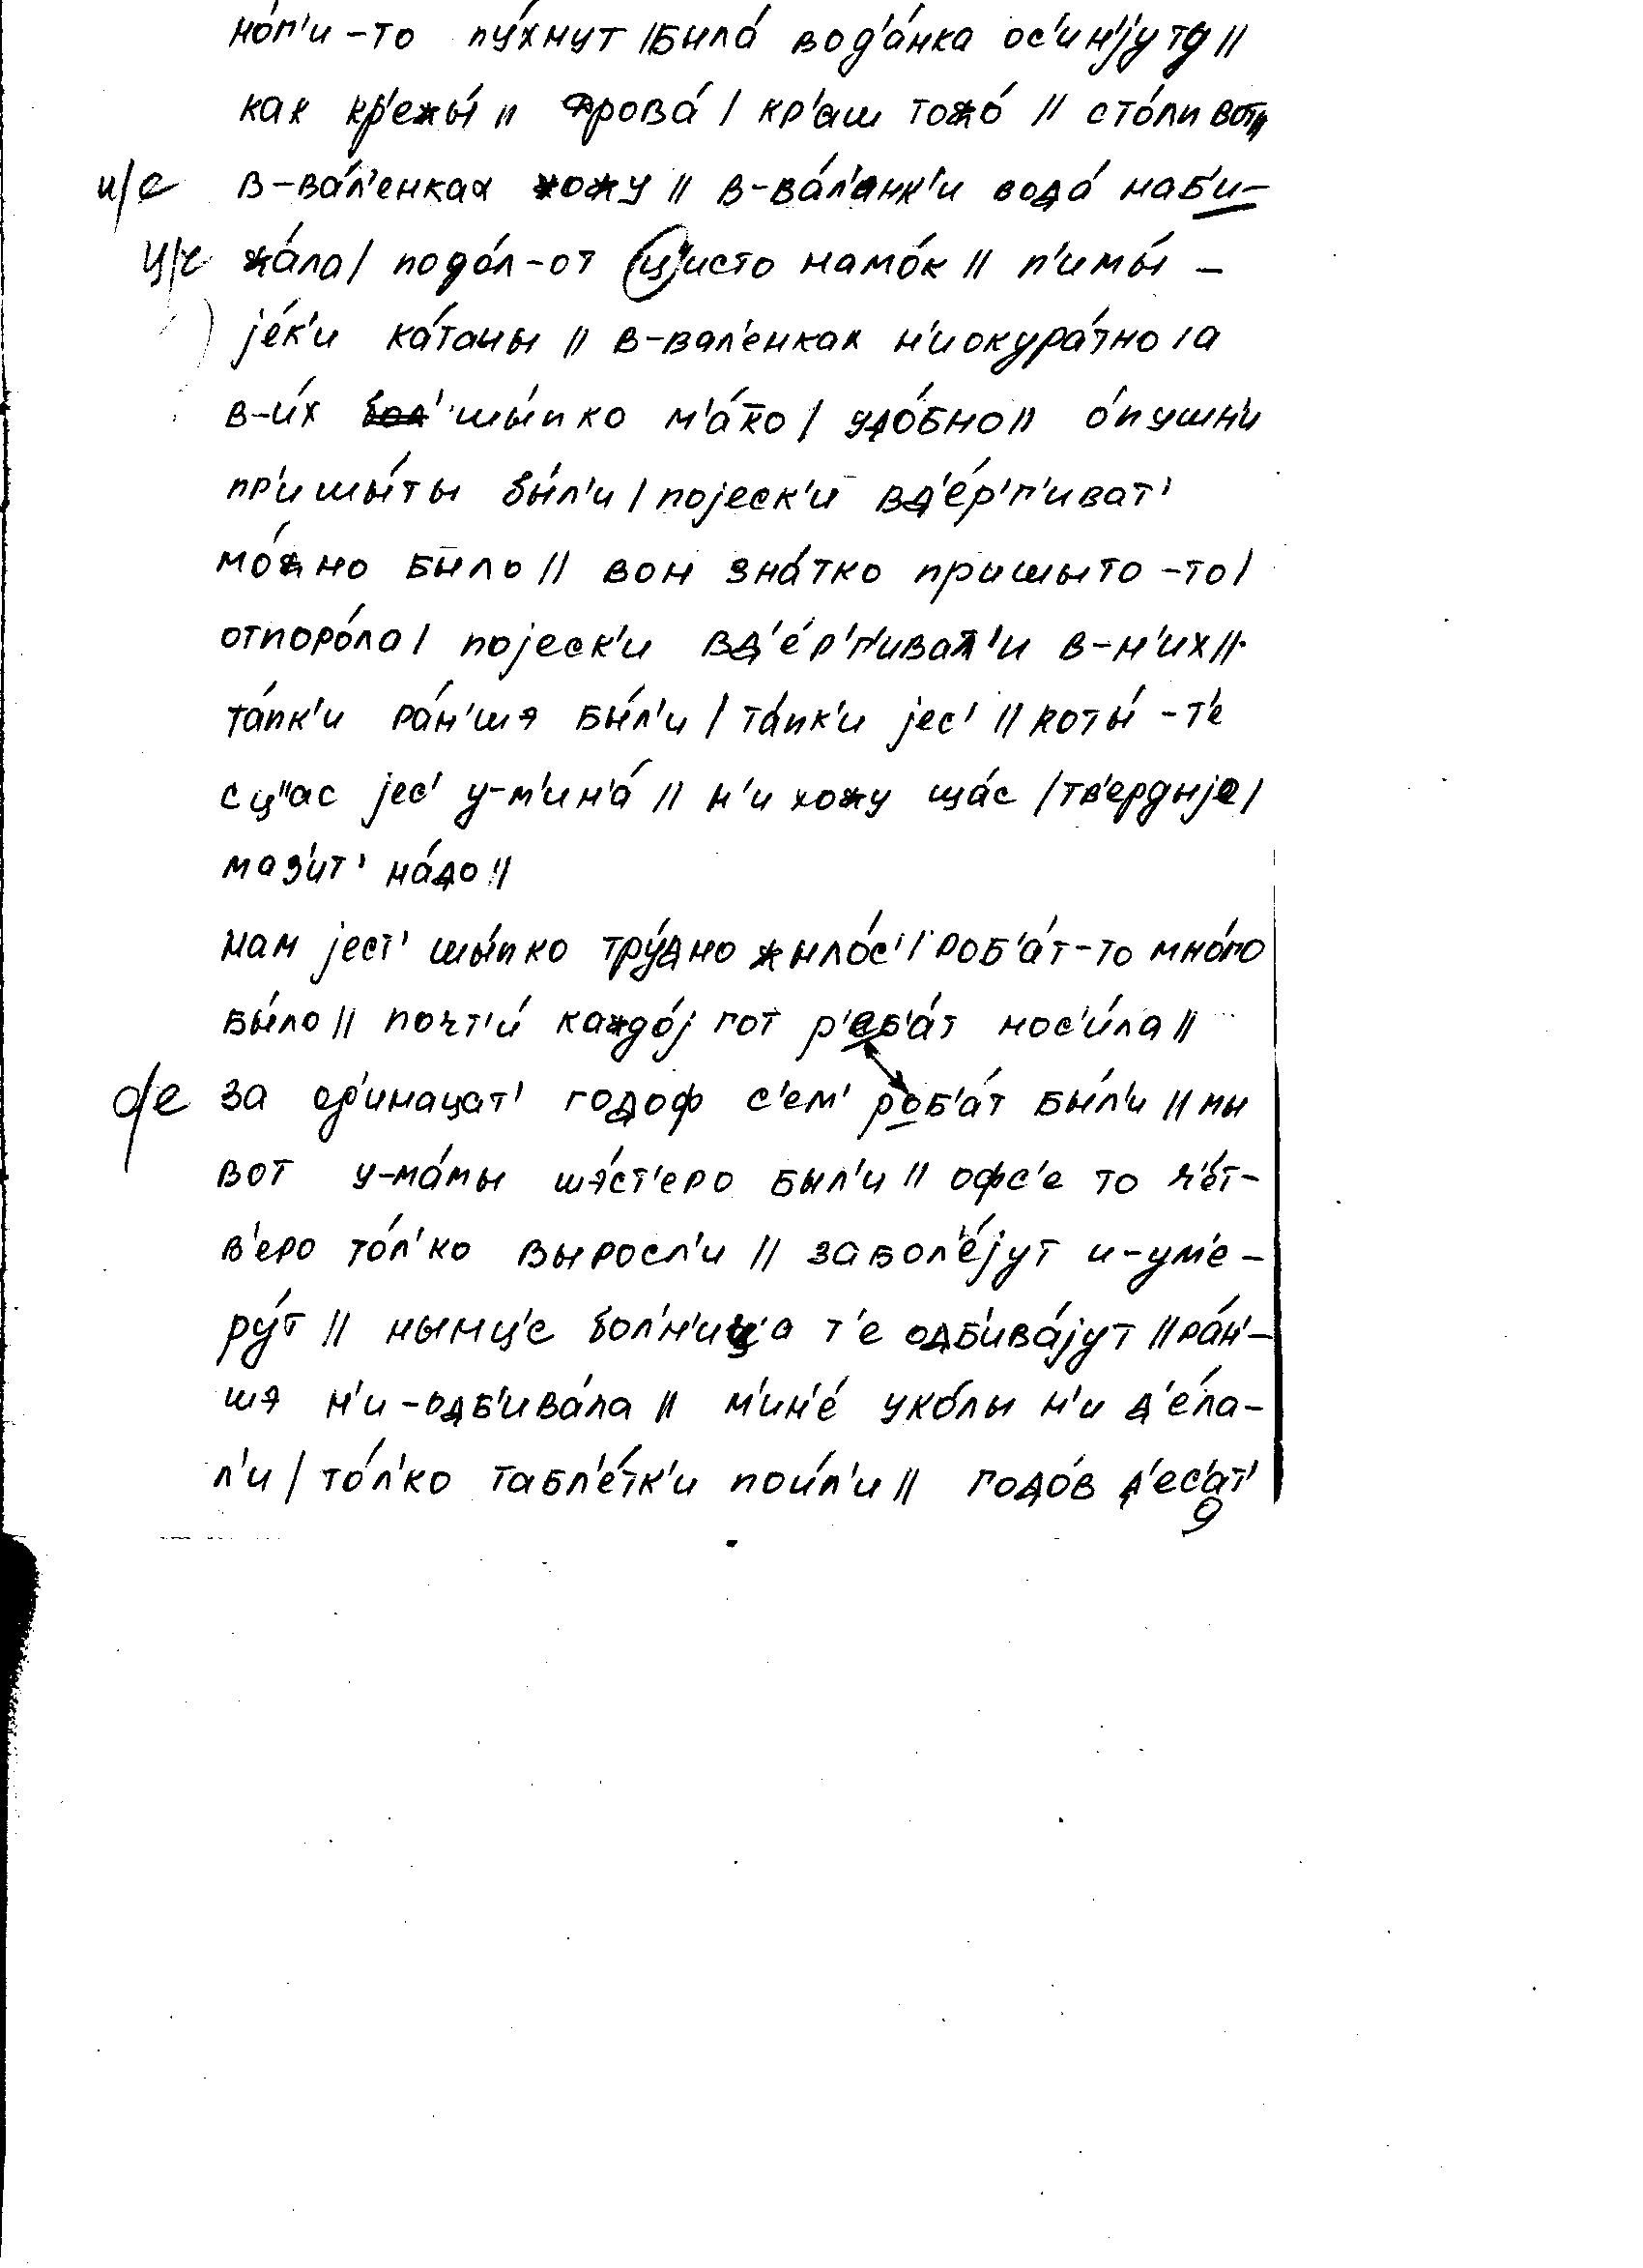 но́г'и-то пу́хнут / была́ вод'а́нка ос'ин'jу тд //
как кр'ежы́ // дрова́ / кр'аш тожо́ // сто́ли вот //
и/е в-ва́л'енках хожу // в-ва́л'анк'и вода́ наб'и-
ц/ч жа́ла / подо́л-от ц"исто намо́к // п'имы́ -
jе́к'и ка́таны // в-вал'енках н'иокура́тно / а
в-и́х шы́пко м'а́ко / удо́бно // о́пушни
пр'ишы́ты бы́л'и / поjеск'и вд'е́р'г'иват'
мо́жно было // вон зна́тко пришыто-то /
отпоро́ла / поjеск'и вд'е́р'г'ивал'и в-н'их //
та́пк'и ра́н'шэ бы́л'и / та́пк'и jес' // коты́-т'е
сц"ас jес' у-м'ин'а́ // н'и хожу ща́с / тв'ердыjе /
маз'ит' на́до //
нам jест' шы́пко тру́дно жыло́с' / роб'а́т-то мно́го
бы́ло // почт'и́ каждо́j гот р'еб'а́т нос'и́ла //
о/е за од'инацат' годоф с'ем' роб'а́т бы́л'и // мы
вот у-ма́мы шэ́ст'еро был'и // офс'е то ч'е́т-
в'еро то́л'ко выросл'и // забол'е́jут и-ум'е-
ру́т // нынц'е бол'н'ица т'е одб'ива́jут // ра́н'-
шэ н'и-одб'ива́ла // м'ин'е́ уко́лы н'и д'е́ла-
л'и / то́л'ко табл'е́тк'и пои́л'и // годо́в д'ес'ат'
9